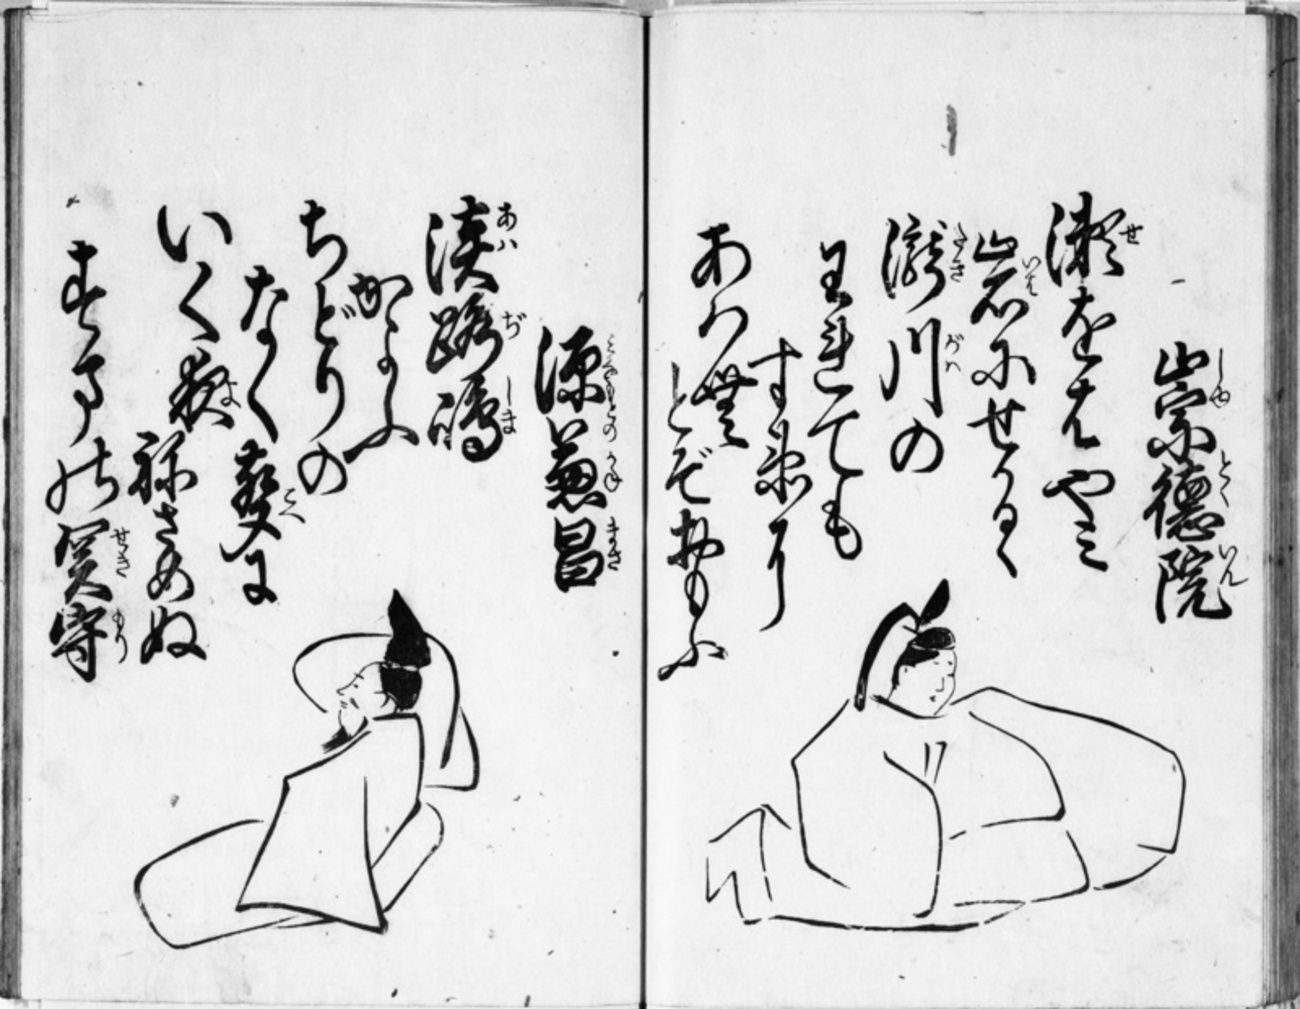 崇徳院
瀬をはやみ
岩にせかるゝ
瀧川の
われても
すゑに
あはむ
とぞおもふ
源兼昌
淡路嶋
かよふ
ちどりの
なく聲に
いく夜
ねざめぬ
すまの関守